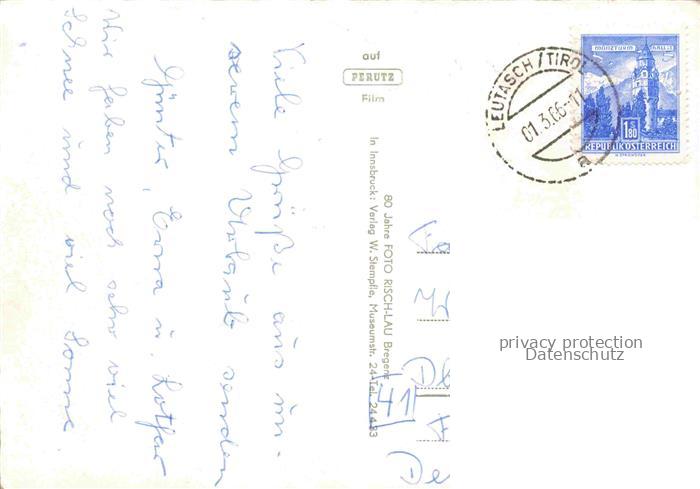 Viele Grüße aus un-
serem Urlaub senden
Günter, Erna u. Lothar
Wir haben noch sehr viel
Schnee und viel Sonne
auf
PERUTZ
Film
80 Jahre FOTO RISCH-LAU Bregenz
In Innsbruck: Verlag W. Stempfle, Museumstr. 24-Tel. 24483
41
LEUTASCH/TIROL
01.3.66-11
a
MÜNZTURM HALL I.T.
S 1.80
REPUBLIK ÖSTERREICH
privacy protection
Datenschutz